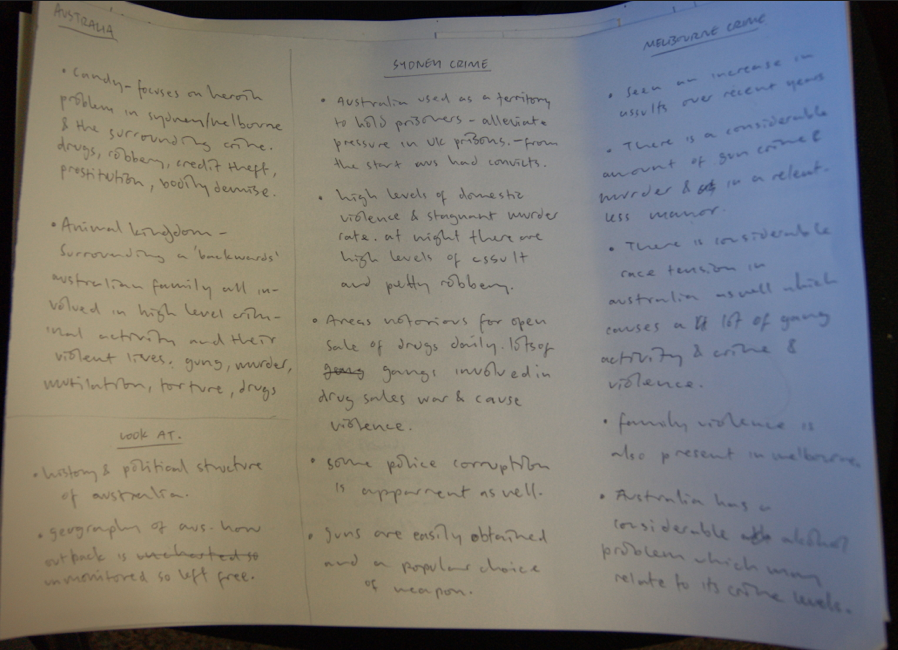 AUSTRALIA
• Candy - focuses on heroin
problem in sydney/melbourne
& the surrounding crime.
drugs, robbery, credit theft,
prostitution, bodily demise.
• Animal kingdom -
surrounding a 'backwards'
australian family all in-
volved in high level crim-
inal activity and their
violent lives. guns, murder,
mutilation, torture, drugs
LOOK AT.
• history & political structure
of australia.
• geography of aus - how
outback is uncharted so
unmonitored so left free.
SYDNEY CRIME
• Australia used as a territory
to hold prisoners - alleviate
pressure in UK prisons. - from
the start aus had convicts.
• high levels of domestic
violence & stagnant murder
rate. at night there are
high levels of assult
and petty robbery.
• Areas notorious for open
sale of drugs daily. lots of
gang gangs involved in
drug sales war & cause
violence.
• some police corruption
is apparrent as well.
• guns are easily obtained
and a popular choice
of weapon.
MELBOURNE CRIME
• Seen an increase in
assults over recent years
• There is a considerable
amount of gun crime &
murder & in a relent-
less manor.
• There is considerable
race tension in
australia aswell which
causes a lot of gang
activity & crime &
violence.
• family violence is
also present in melbourne.
• Australia has a
considerable alcohol
problem which may
relate to its crime levels.